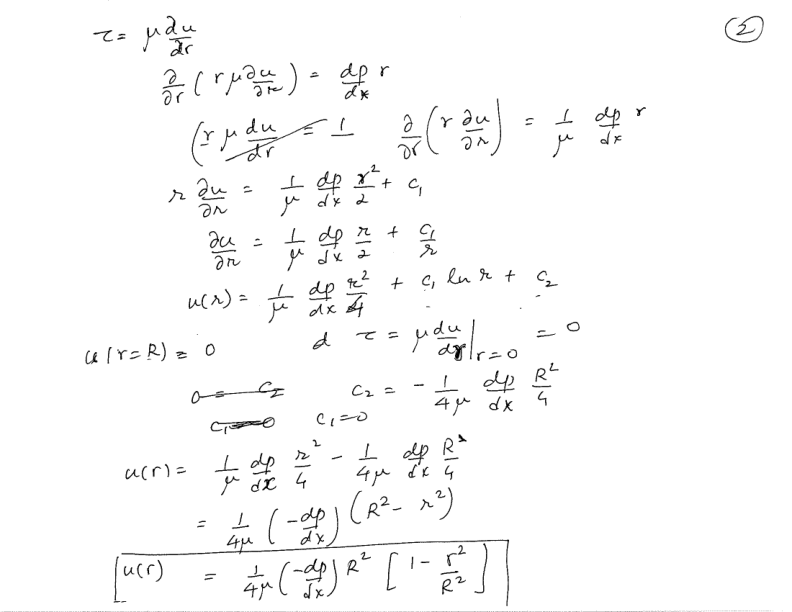 ②
τ = μ du/dr
∂/∂r (r μ ∂u/∂r) = dp/dx r
(r μ du/dr = 1 ∂/∂r (r ∂u/∂r) = 1/μ dp/dx r
r ∂u/∂r = 1/μ dp/dx r²/2 + c₁
∂u/∂r = 1/μ dp/dx r/2 + c₁/r
u(r) = 1/μ dp/dx r²/4 + c₁ ln r + c₂
u(r=R) = 0 d τ = μ du/dr|r=0 = 0
0 = c₂ c₂ = - 1/4μ dp/dx R²/4
c₁=0 c₁=0
u(r) = 1/μ dp/dx r²/4 - 1/4μ dp/dx R²/4
= 1/4μ (-dp/dx) (R² - r²)
u(r) = 1/4μ (-dp/dx) R² [1 - r²/R²]